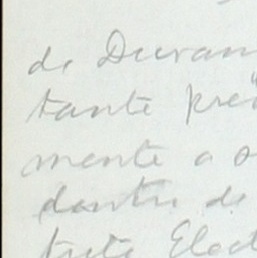 de Duran
tante pre
mente a o
dantre de
trito Elect